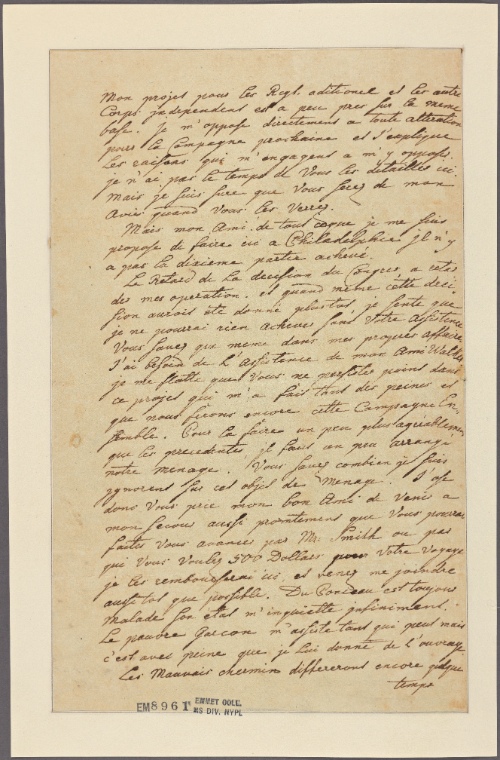 Mon projet pour les Regt. aditionel et les autre
Corps independent est a peu pres sur la meme
base. je m'oppose directement a toute alteration
pour la Campagne prochaine et j'explique
les raisons qui m'engagent a m'y opposer.
je n'ai pas le temps de Vous les detailler ici
mais je suis sure que vous serez de mon
avis quand vous les Verrez.
Mais mon Ami de tout ceque je me suis
propose de faire ici a Philadelphie il n'y
a pas la dixieme partie achevé.
Le Retard de la decision du Congres, a retar
des mes operation. et quand même cette deci-
sion auroit ete donné plustot, je sente que
je ne pourrai rien achever sans votre Assistence
Vous savez que meme dans mes propres affaires
j'ai besoin de l'assistence de mon Ami Walker
je me flatte que Vous ne me refusez point dans
ce projet qui m'a fait tant des peines et
que nous ferons encore cette Campagne En-
semble. Pour la faire un peu plus agreablement
que les precedentes, il faut un peu arrangé
notre menage. Vous savez combien je suis
ignorent sur cet objet de menage. j'ose
donc Vous prie mon bon Ami de venir a
mon secours aussi promtement que Vous pourrez
faites Vous avancer par Mr. Smith ou par
qui Vous Voulez 500 Dollars pour votre Voyage
je les rembourserai ici, et venez me joindre
aussitot que possible. Du Ponceau est toujours
malade son etat m'inquiette infiniment.
Le pauvre Garcon m'assiste tant qui peut mais
c'est avec peine que je lui donne de l'ouvrage
Les Mauvais chemin differeront encore quelque
temps
EM8961 EMMET COLL.
MS DIV. NYPL